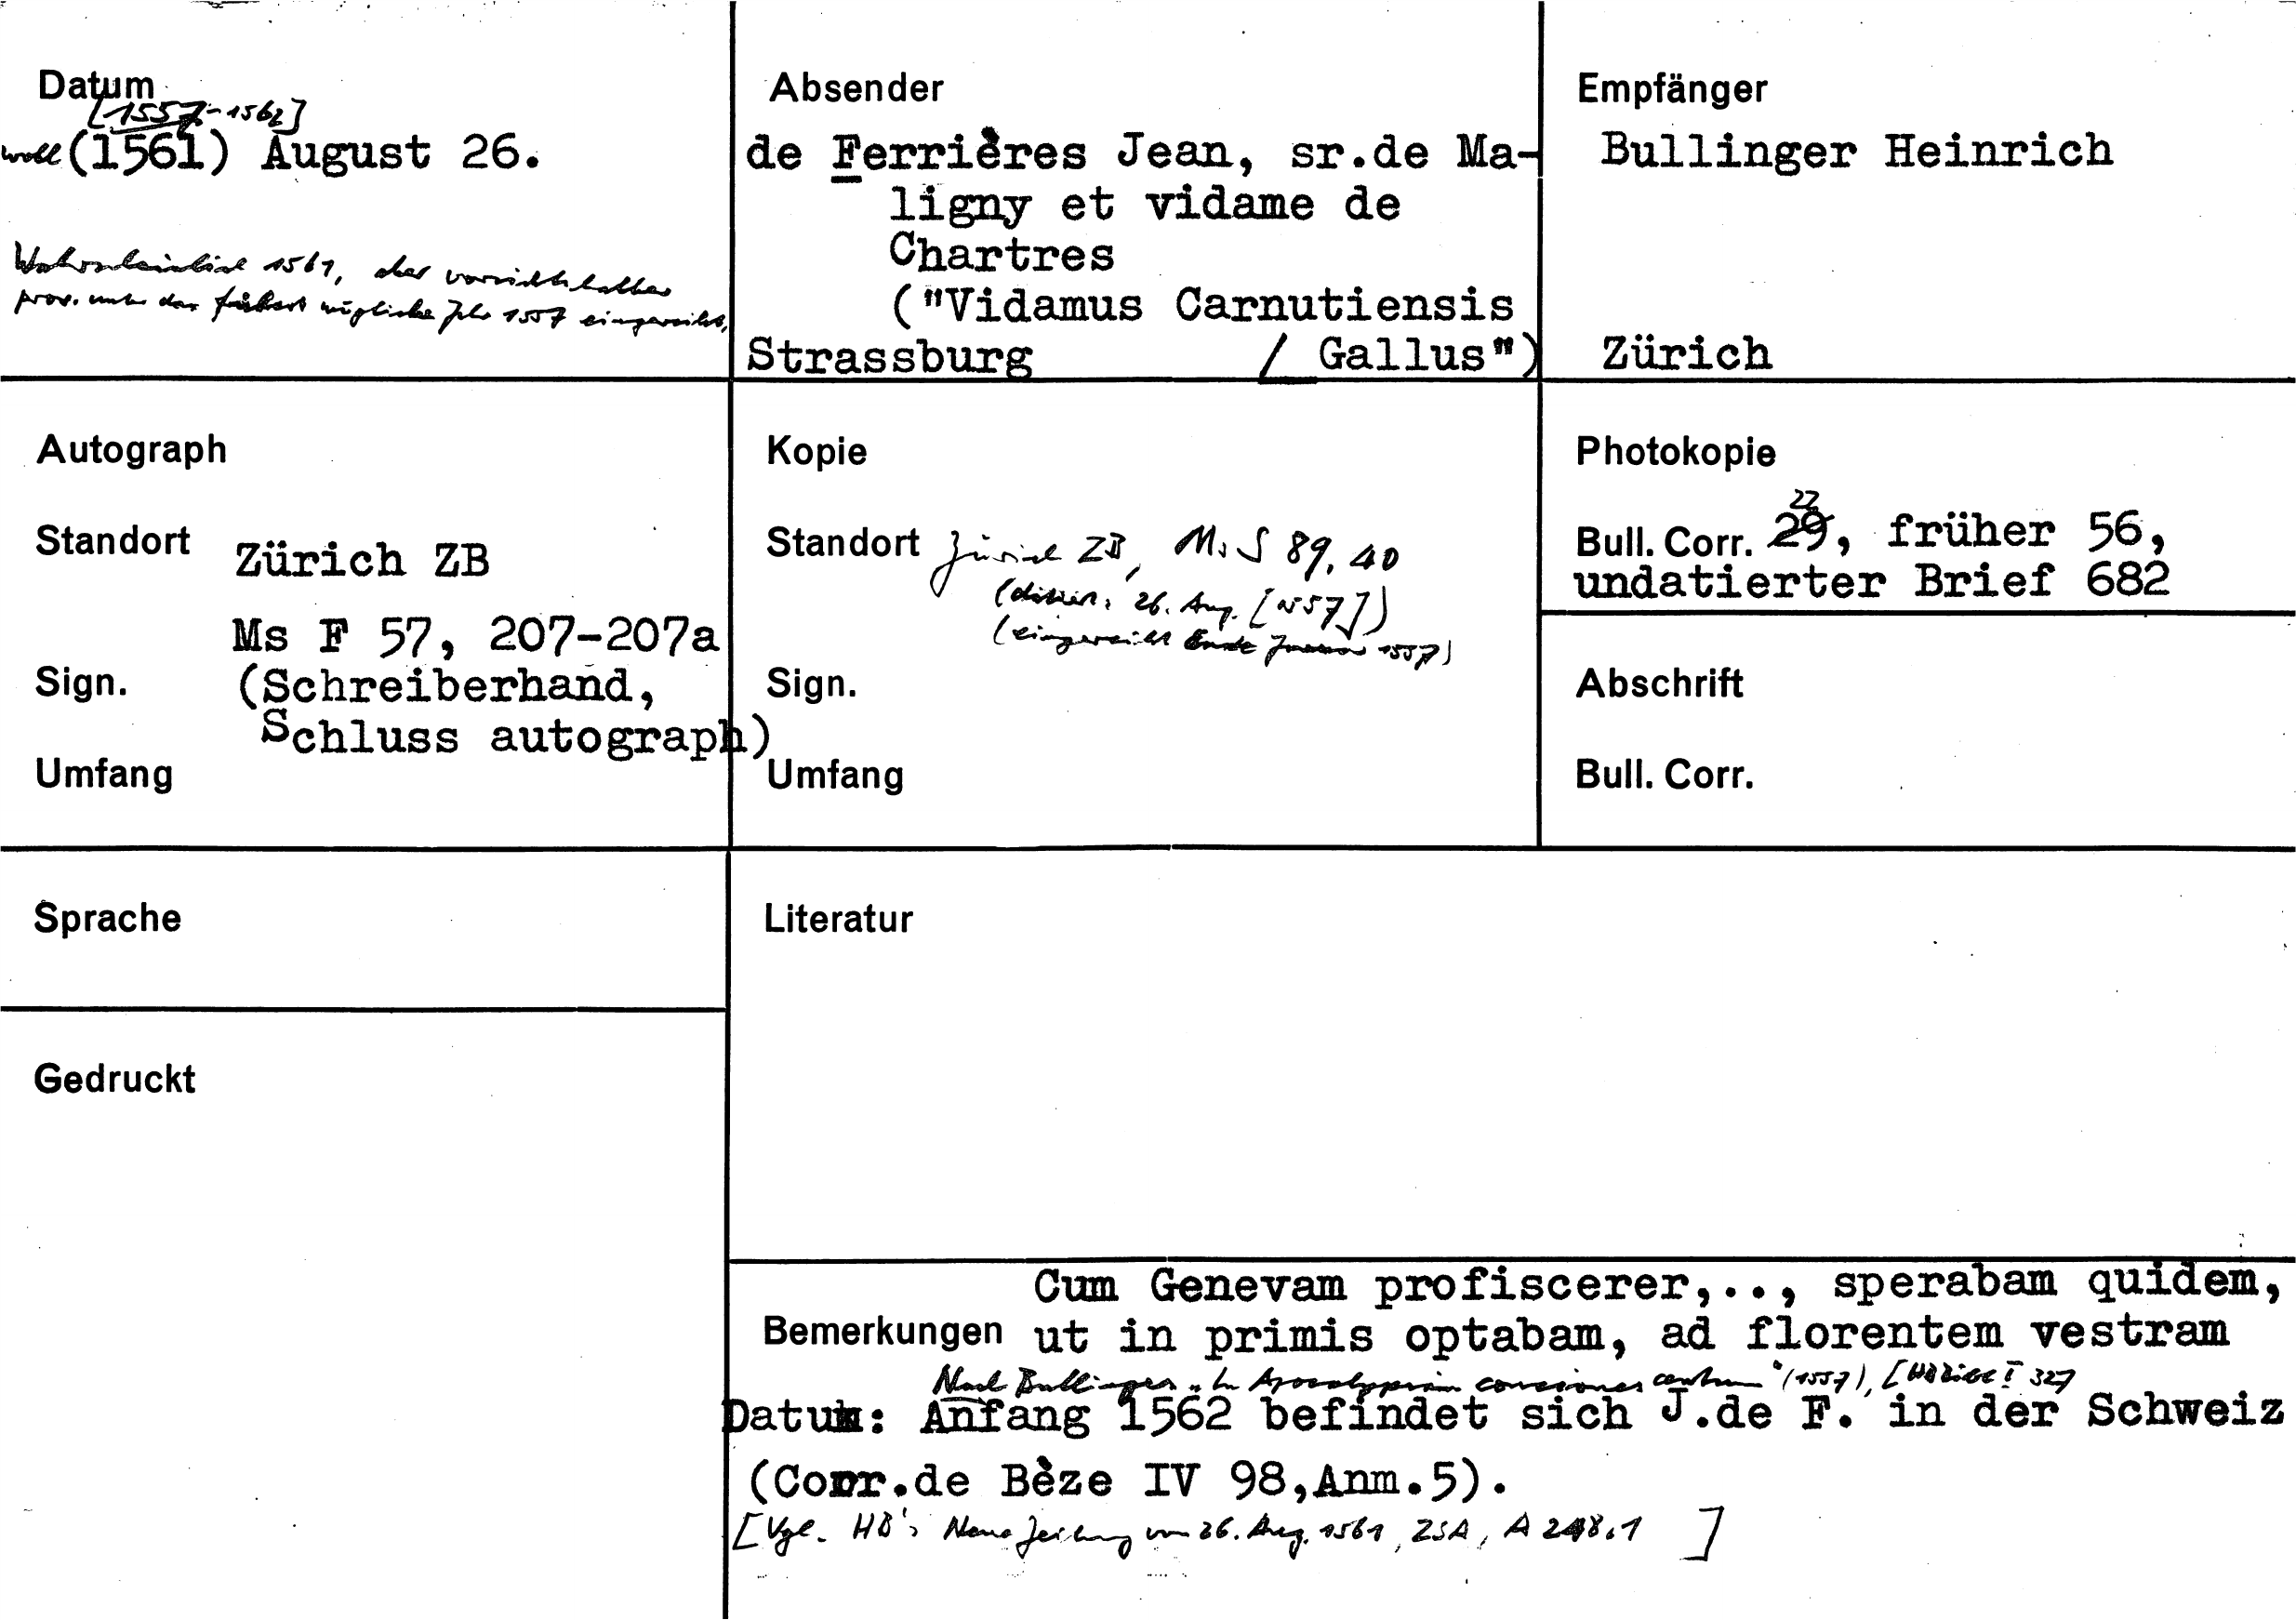 Datum
[1557-1562]
wohl (1561) August 26.
Wahrscheinlich 1561, aber vorsichtshalber
prov. unter das früheste mögliche Jahr 1557 eingereiht.
Absender
de Ferrières Jean, sr.de Ma-
ligny et vidame de
Chartres
("Vidamus Carnutiensis
Strassburg / Gallus")
Empfänger
Bullinger Heinrich
Zürich
Autograph
Standort Zürich ZB
Ms F 57, 207-207a
Sign. (Schreiberhand,
Schluss autograph)
Umfang
Kopie
Standort Zürich ZB, Ms S 89, 40
(datiert: 26. Aug. [1557])
(eingereiht Ende 1557)
Sign.
Umfang
Photokopie
22
Bull. Corr. 29, früher 56,
undatierter Brief 682
Abschrift
Bull. Corr.
Sprache
Literatur
Gedruckt
Cum Genevam profiscerer,.., sperabam quidem,
Bemerkungen ut in primis optabam, ad florentem vestram
Nach Bullingers „In Apocalypsim conciones centum" (1557), [HBBibl I 327
Datum: Anfang 1562 befindet sich J.de F. in der Schweiz
(Corr.de Bèze IV 98,Anm.5).
[Vgl. HB's Neue Zeitung vom 26. Aug. 1561, ZSA, A 248.1 ]